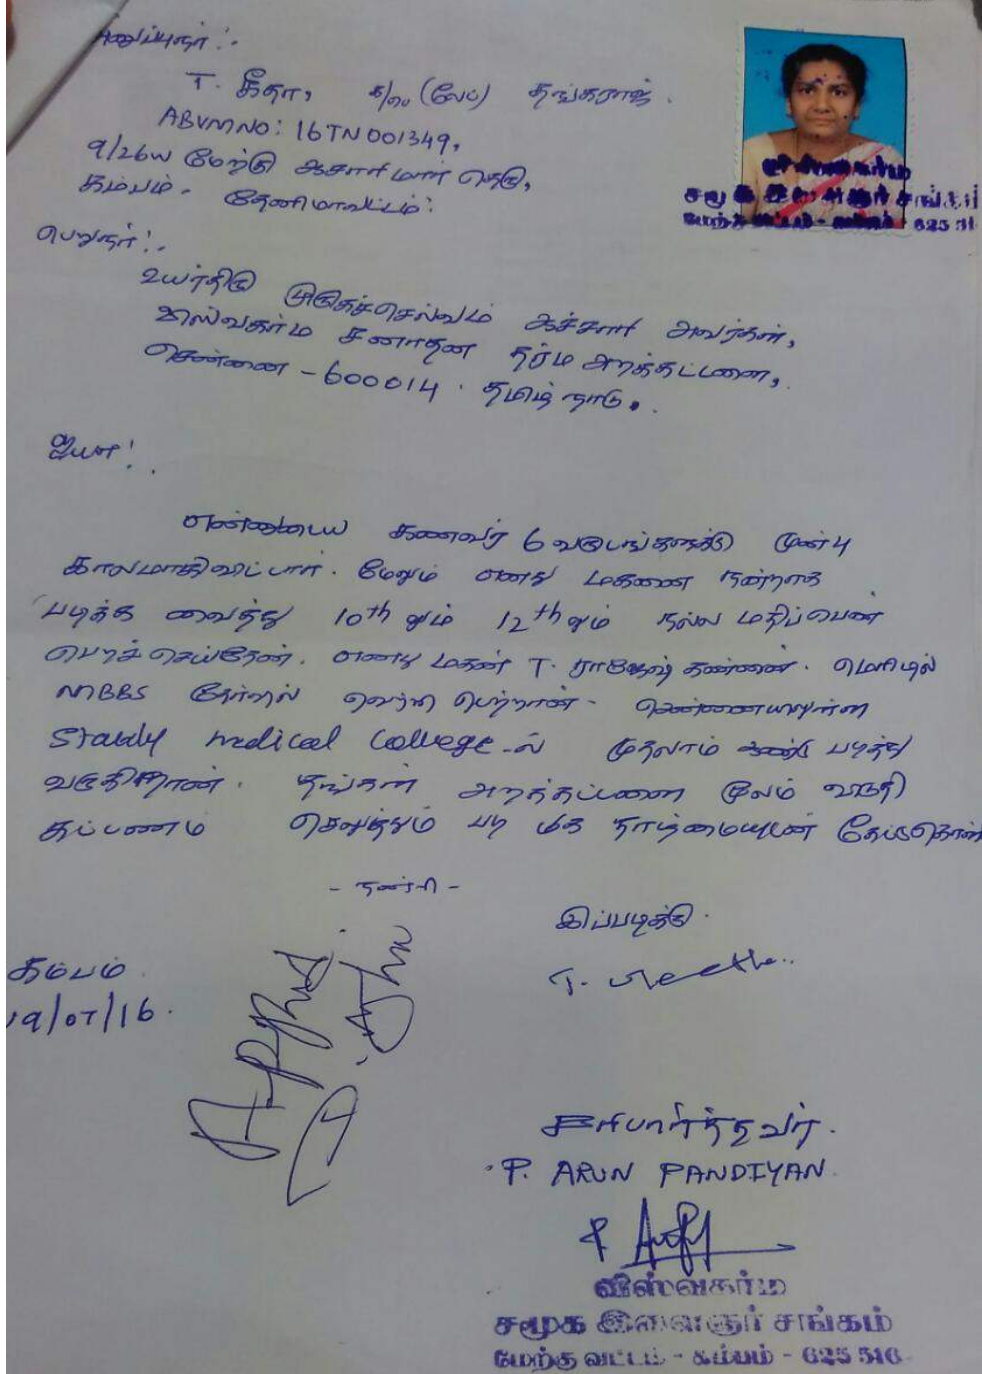 அனுப்புநர்:-
T. கீதா, க/பெ (லேட்) தங்கராஜ்.
ABVM NO: 16TN001349,
9/26W மேற்கு ஆசாரிமார் தெரு,
கம்பம். தேனிமாவட்டம்.
பெறுநர்:-
உயர்திரு முருகச்செல்வம் ஆச்சாரி அவர்கள்,
விஸ்வகர்ம சனாதன தர்ம அறக்கட்டளை,
சென்னை - 600014. தமிழ் நாடு.
ஐயா!
என்னுடைய கணவர் 6 வருடங்களுக்கு முன்பு
காலமாகிவிட்டார். மேலும் எனது மகனை நன்றாக
படிக்க வைத்து 10th லும் 12th லும் நல்ல மதிப்பெண்
பெறச் செய்தேன். எனது மகன் T. ராஜேஷ் கண்ணன். மெரிடில்
MBBS தேர்வில் வெற்றி பெற்றான். சென்னையிலுள்ள
Stanly medical College-ல் முதலாம் ஆண்டு படித்து
வருகிறான். தங்கள் அறக்கட்டளை மூலம் விடுதி
கட்டணம் செலுத்தும் படி மிக தாழ்மையுடன் கேட்டுகொள்
- நன்றி -
இப்படிக்கு.
கம்பம்.
T. Geetha..
19/07/16.
சரிபார்த்தவர்.
P. ARUN PANDIYAN.
விஸ்வகர்ம
சமூக இளைஞர் சங்கம்
மேற்கு வட்டம் - கம்பம் - 625 516